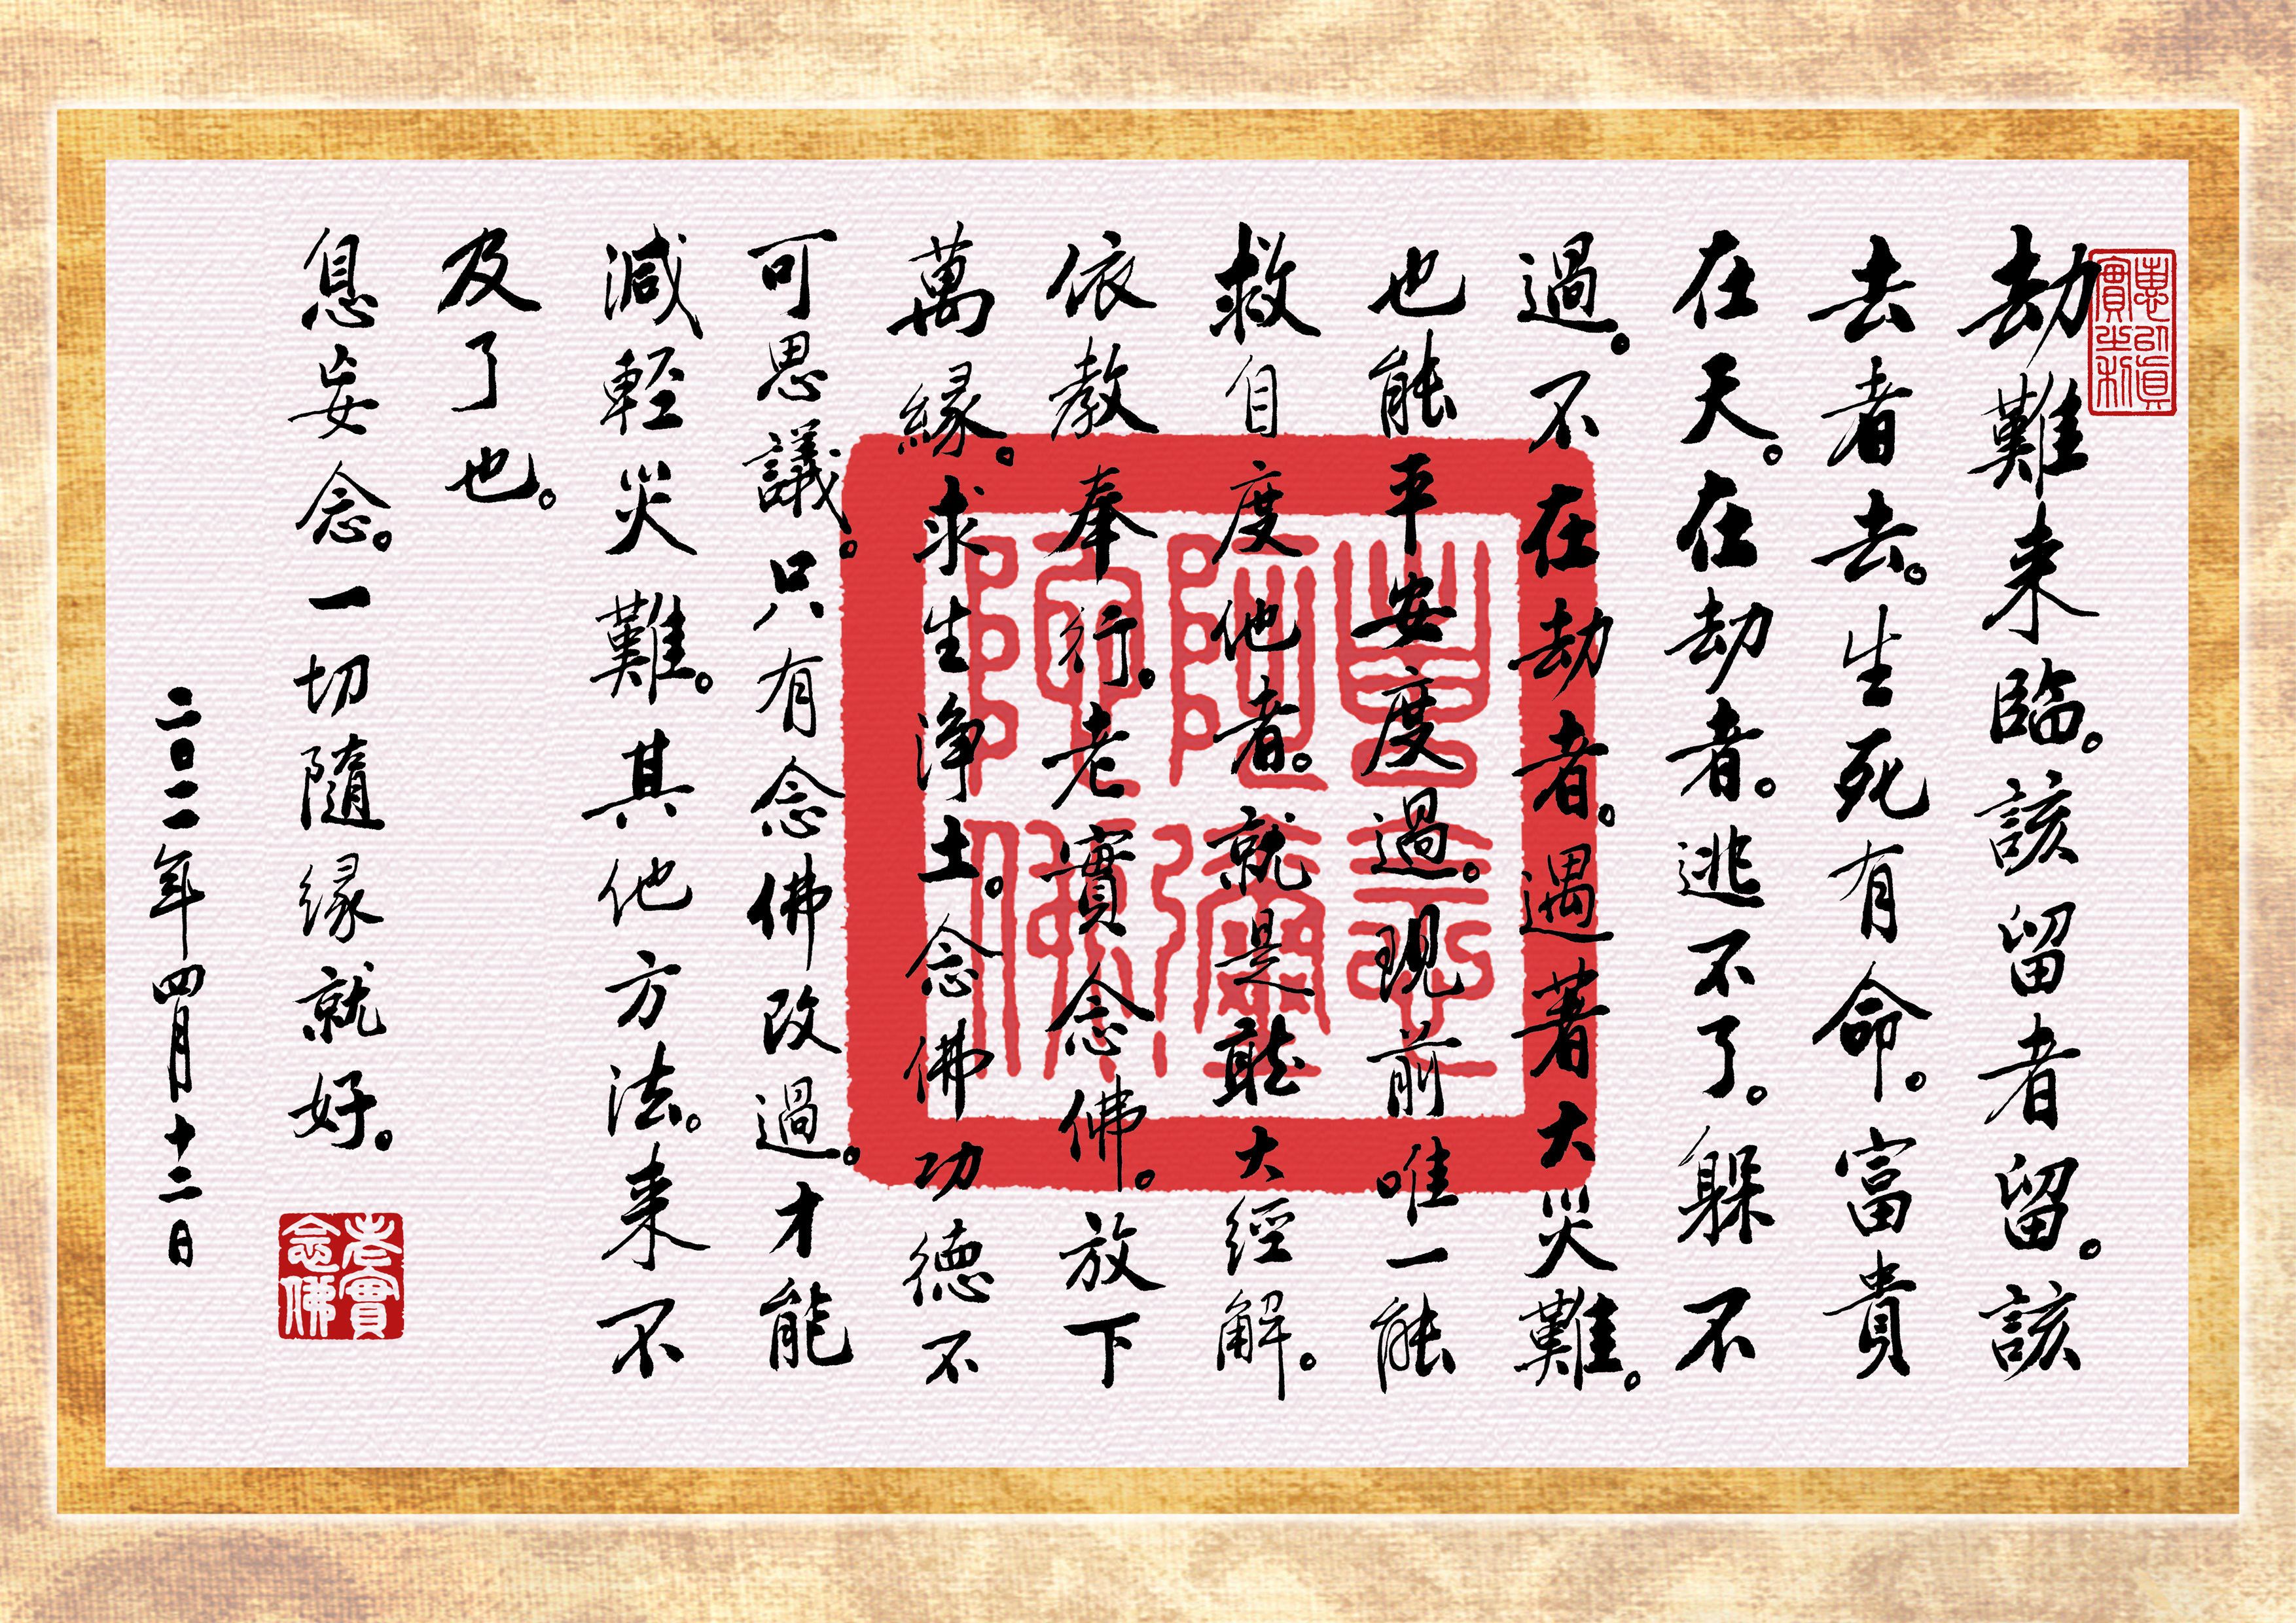 劫難来臨。該留者留。該
去者去。生死有命。富貴
在天。在劫者。逃不了。躲不
過。不在劫者。遇著大災難。
也能平安度過。現前唯一能
救自度他者。就是聽大經解。
依教奉行。老實念佛。放下
萬緣。求生淨土。念佛功德不
可思議。只有念佛改過。才能
減輕災難。其他方法。来不
及了也。
息妄念。一切隨緣就好。
二〇二二年四月十二日
老實
念佛